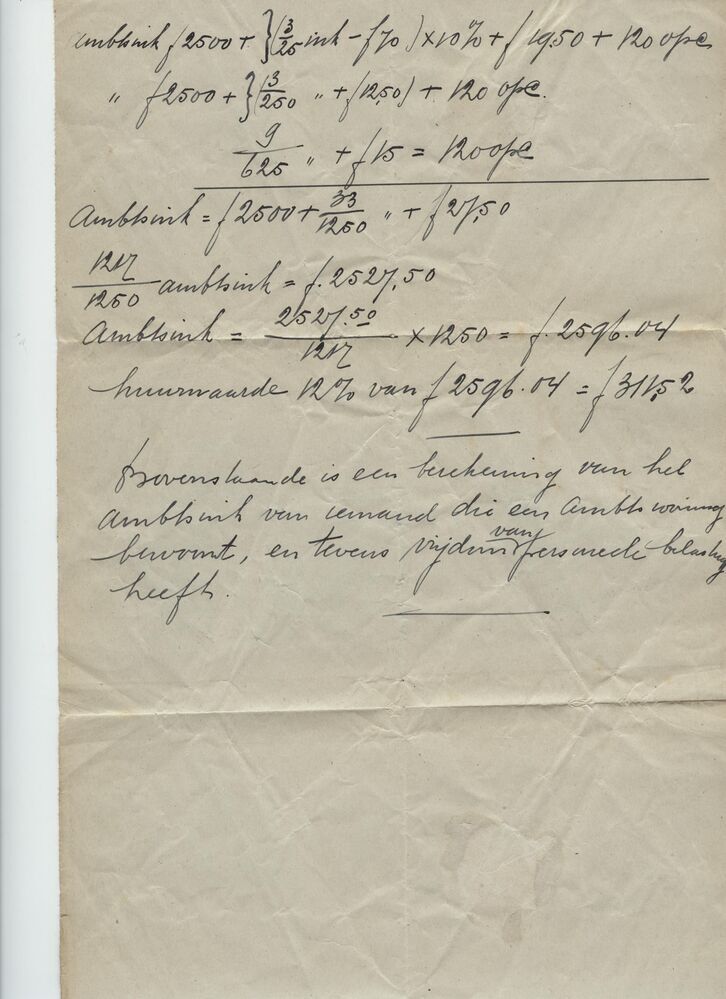 ambtsink f 2500 + }(3/25 ink - f 70) × 10% + f 19.50 + 120 opc
" f 2500 + }(3/250 " + f 12,50) + 120 opc.
9/625 " + f 15 = 120 opc
Ambtsink = f 2500 + 33/1250 " + f 27,50
1217/1250 ambtsink = f. 2527,50
Ambtsink = 2527.50/1217 × 1250 = f. 2596.04
huurwaarde 12% van f 2596.04 = f 311,52
Bovenstaande is een berekening van het
ambtsink van iemand die een Ambtswoning
bewoont, en tevens vrijdom van personeele belasting
heeft.